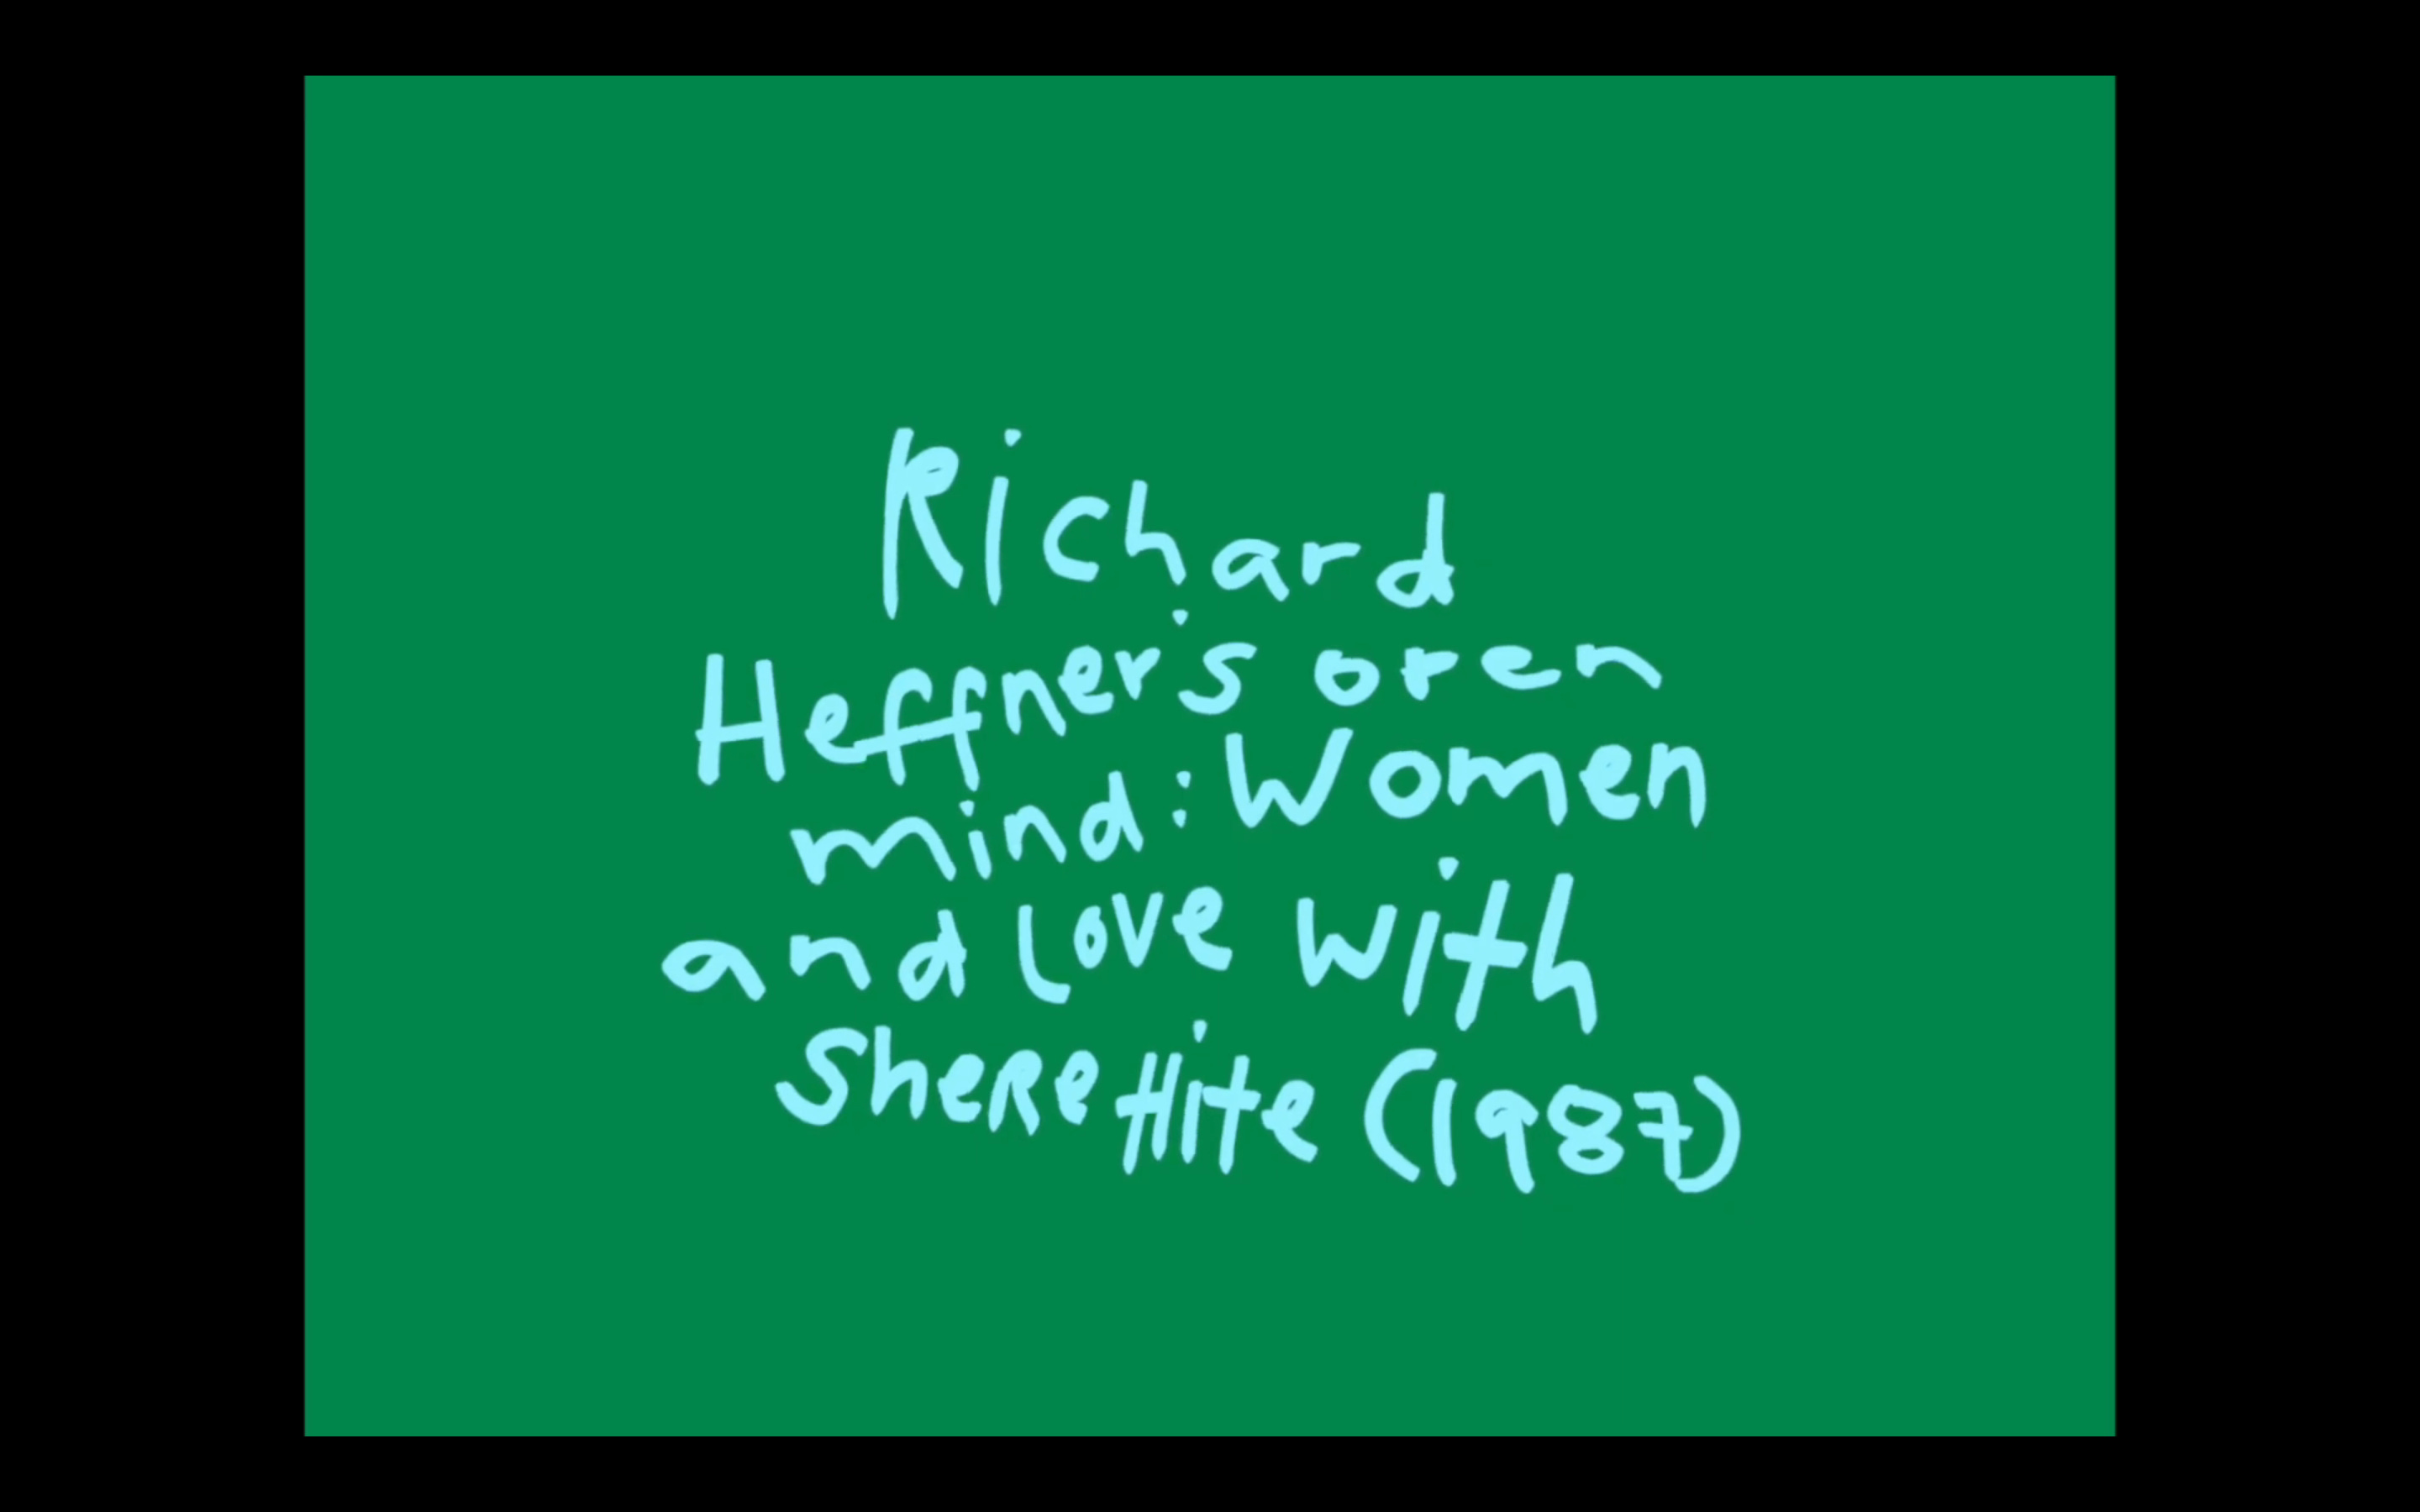 Richard
Heffner's open
mind: Women
and love with
Shere Hite (1987)